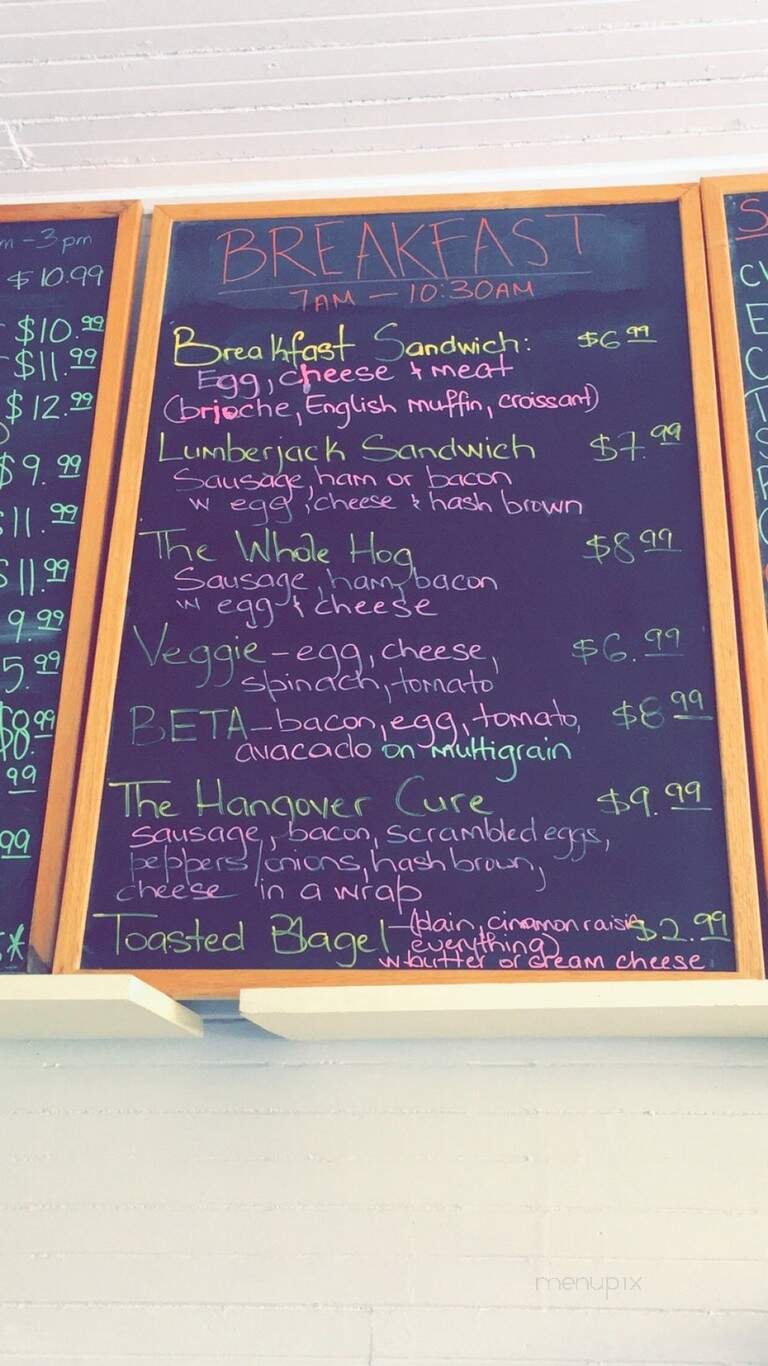 m - 3pm
$10.99
$10.99
$11.99
$12.99
$9.99
$11.99
$11.99
9.99
5.99
$8.99
99
99
BREAKFAST
7AM — 10:30AM
Breakfast Sandwich: $6.99
Egg, cheese & meat
(brioche, English muffin, croissant)
Lumberjack Sandwich $7.99
Sausage, ham or bacon
w egg, cheese & hash brown
The Whole Hog $8.99
Sausage, ham, bacon
w egg & cheese
Veggie - egg, cheese, $6.99
spinach, tomato
BETA - bacon, egg, tomato, $8.99
avacado on multigrain
The Hangover Cure $9.99
sausage, bacon, scrambled eggs,
peppers/onions, hash brown,
cheese in a wrap
Toasted Bagel - (plain, cinamon raisin $2.99
everything)
w butter or cream cheese
menupix